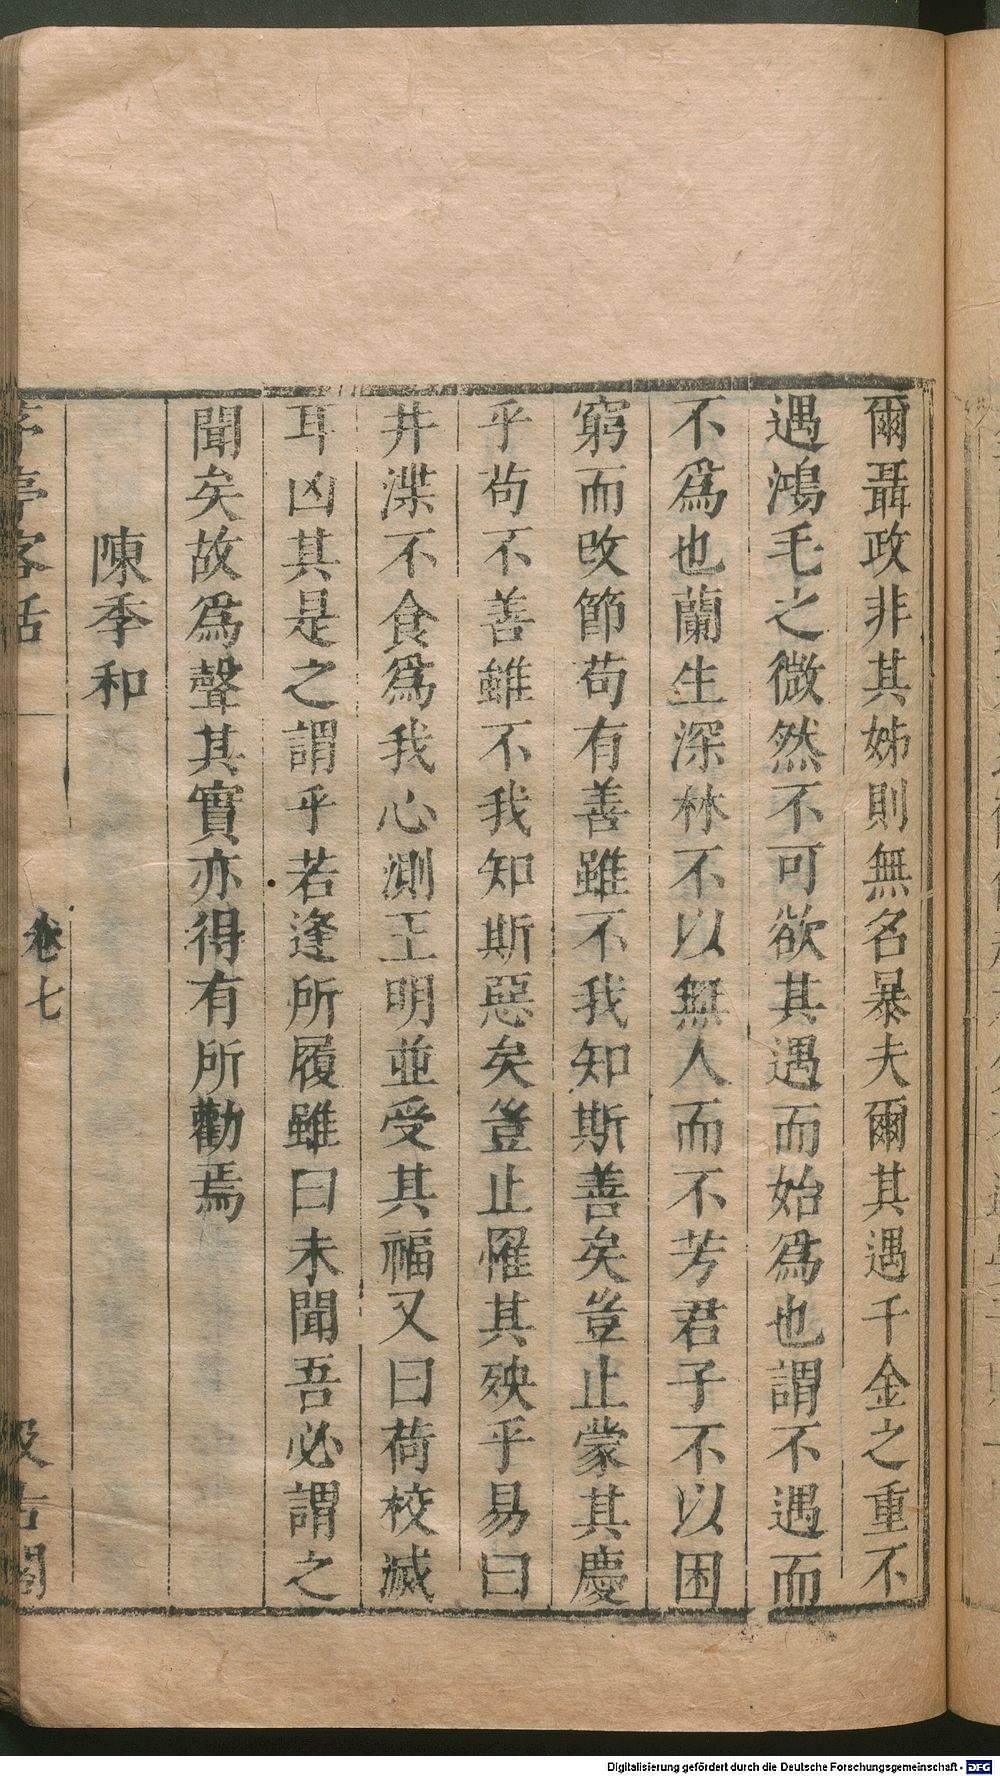 爾聶政非其姊則無名暴夫爾其遇千金之重不
遇鴻毛之微然不可欲其遇而始爲也謂不遇而
不爲也蘭生深林不以無人而不芳君子不以困
窮而改節苟有善雖不我知斯善矣豈止蒙其慶
乎苟不善雖不我知斯惡矣豈止罹其殃乎易曰
井渫不食爲我心測王明並受其福又曰荷校滅
耳凶其是之謂乎若逢所履雖曰未聞吾必謂之
聞矣故爲聲其實亦得有所勸焉
陳季和
茅亭客話 卷七 汲古閣
Digitalisierung gefördert durch die Deutsche Forschungsgemeinschaft - DFG